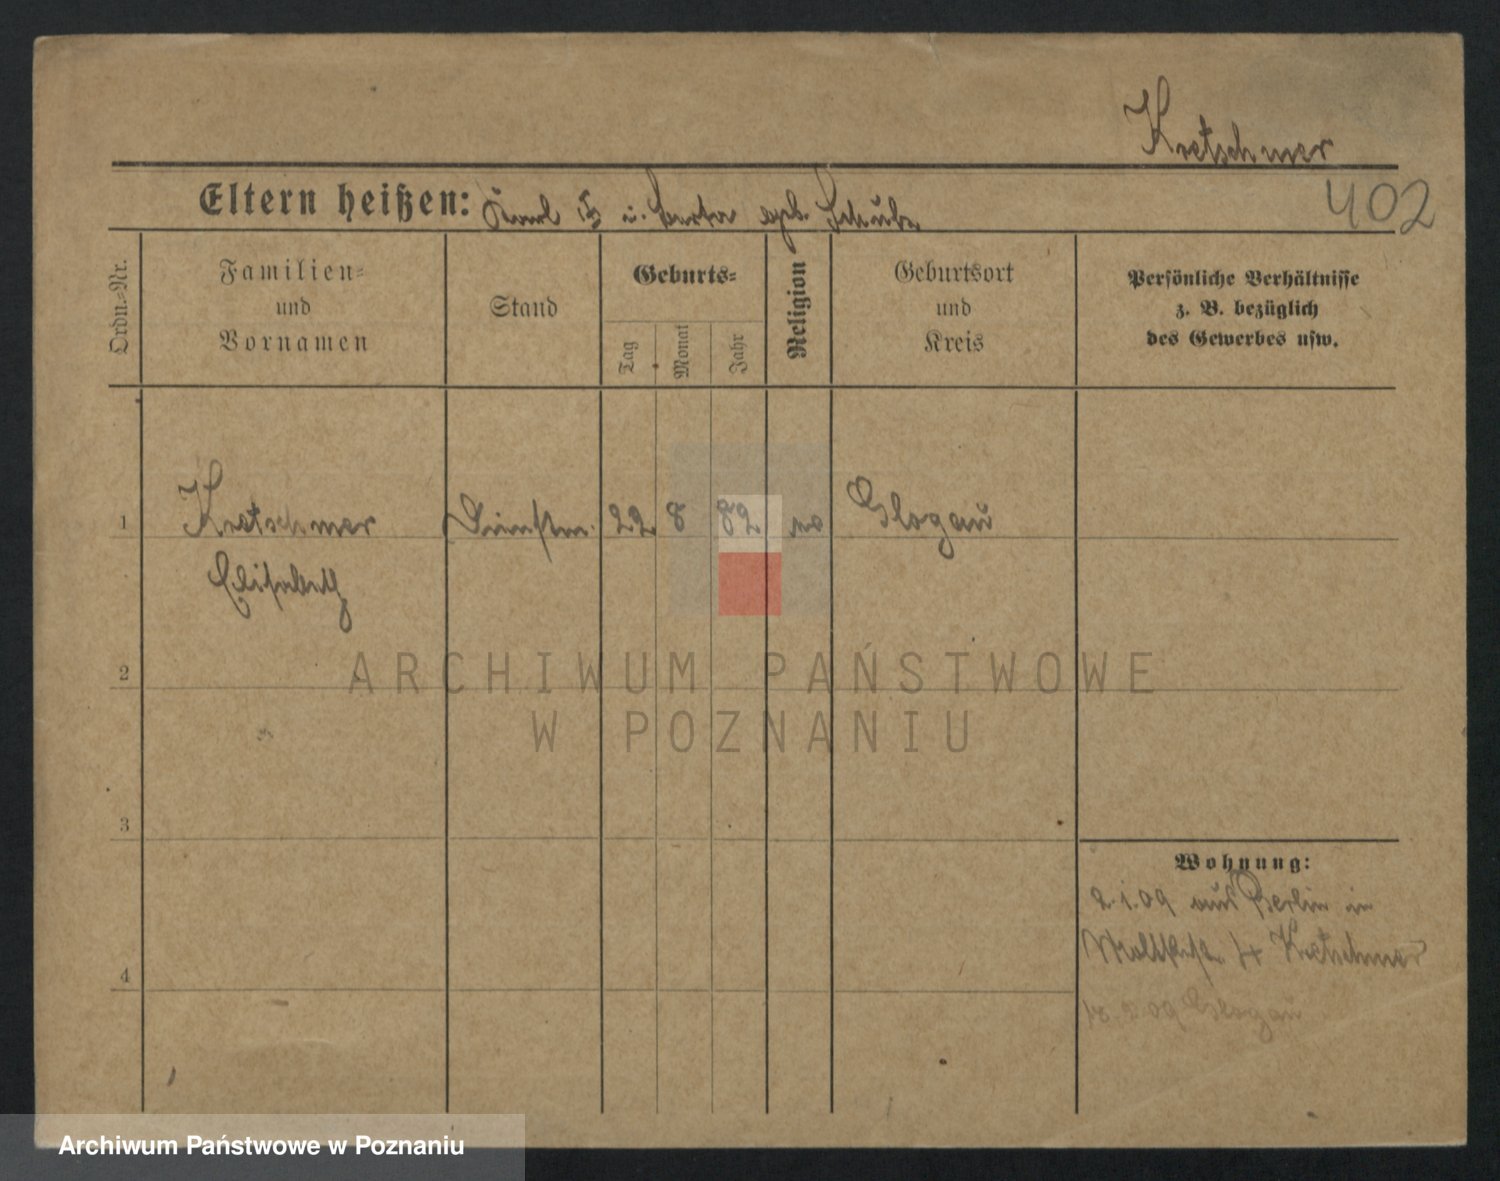 Kretschmer
402
Eltern heißen: Karl u. Berta geb. Schubert
Ordn.-Nr.
Familien-
und
Vornamen
Stand
Geburts-
Tag
Monat
Jahr
Religion
Geburtsort
und
Kreis
Persönliche Verhältnisse
z. B. bezüglich
des Gewerbes usw.
1 Kretschmer 22 8 82 Glogau
Elisabeth
2
3
4
Wohnung:
2.1.09 aus Berlin in
Kretschmer
2 09 Glogau
ARCHIWUM PAŃSTWOWE
W POZNANIU
Archiwum Państwowe w Poznaniu